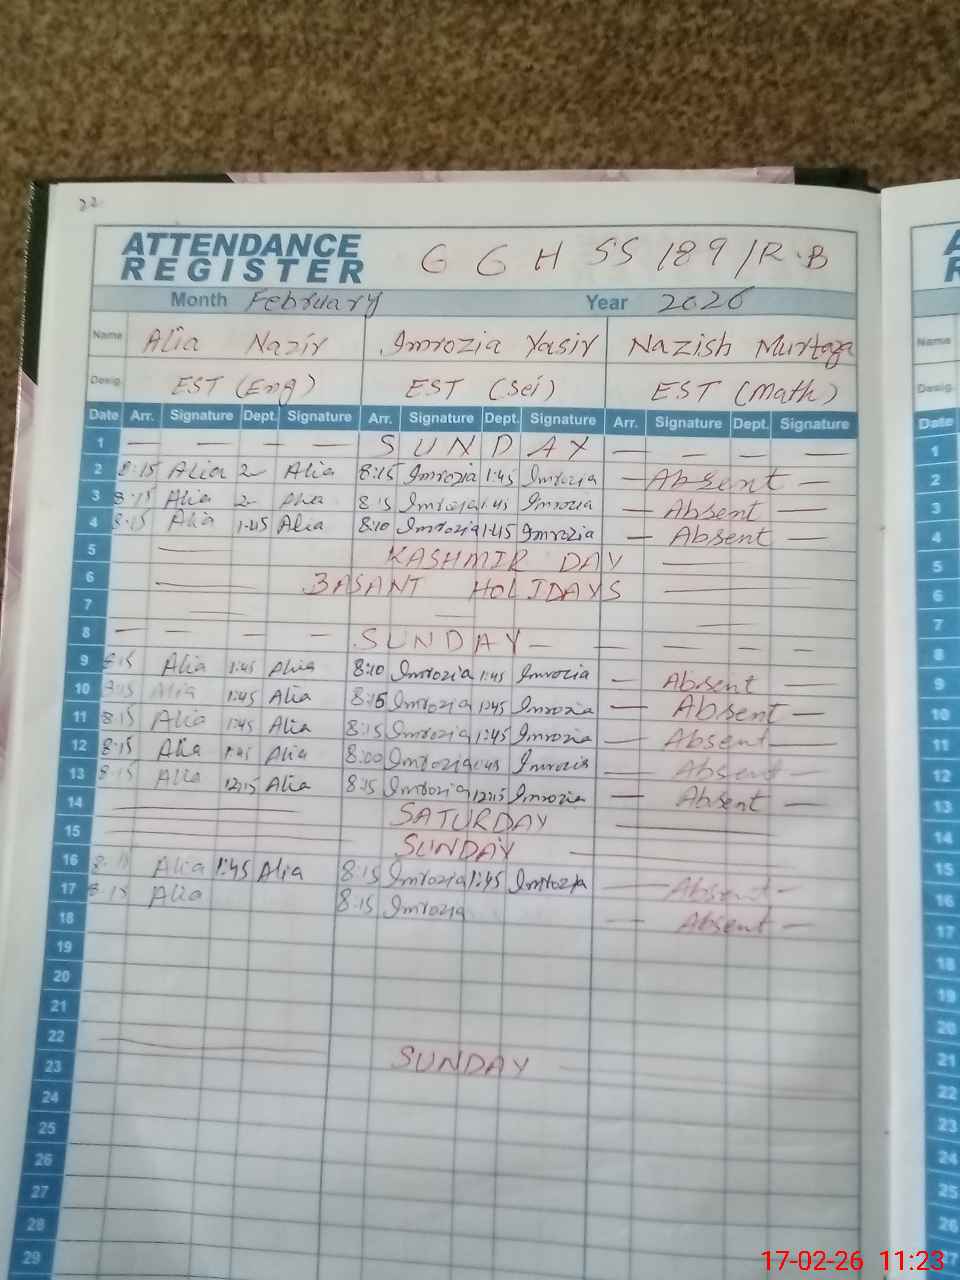 22
ATTENDANCE REGISTER G G H SS 189/R.B
Month February Year 2026
Name Alia Nazir Imrozia Yasir Nazish Murtaza
Desig. EST (Eng) EST (Sci) EST (Math)
Date Arr. Signature Dept. Signature Arr. Signature Dept. Signature Arr. Signature Dept. Signature
1 — — - — SUNDAY — — — —
2 8:15 Alia 2 Alia 8:15 Imrozia 1:45 Imrozia — Absent —
3 8:15 Alia 2 Alia 8:15 Imrozia 1:45 Imrozia — Absent —
4 8:15 Alia 1:45 Alia 8:10 Imrozia 1:45 Imrozia — Absent —
5 — KASHMIR DAY —
6 — BASANT HOLIDAYS —
7 — — —
8 — — - — SUNDAY — — — — —
9 8:15 Alia 1:45 Alia 8:10 Imrozia 1:45 Imrozia — Absent —
10 8:15 Alia 1:45 Alia 8:15 Imrozia 1:45 Imrozia — Absent —
11 8:15 Alia 1:45 Alia 8:15 Imrozia 1:45 Imrozia — Absent —
12 8:15 Alia 1:45 Alia 8:00 Imrozia 1:45 Imrozia — Absent —
13 8:15 Alia 12:15 Alia 8:15 Imrozia 12:15 Imrozia — Absent —
14 — SATURDAY —
15 — SUNDAY —
16 8:15 Alia 1:45 Alia 8:15 Imrozia 1:45 Imrozia — Absent -
17 8:15 Alia 8:15 Imrozia — Absent —
18
19
20
21
22 — SUNDAY —
23
24
25
26
27
28
29
Name
Desig.
Date
1
2
3
4
5
6
7
8
9
10
11
12
13
14
15
16
17
18
19
20
21
22
23
24
25
26
17-02-26 11:23